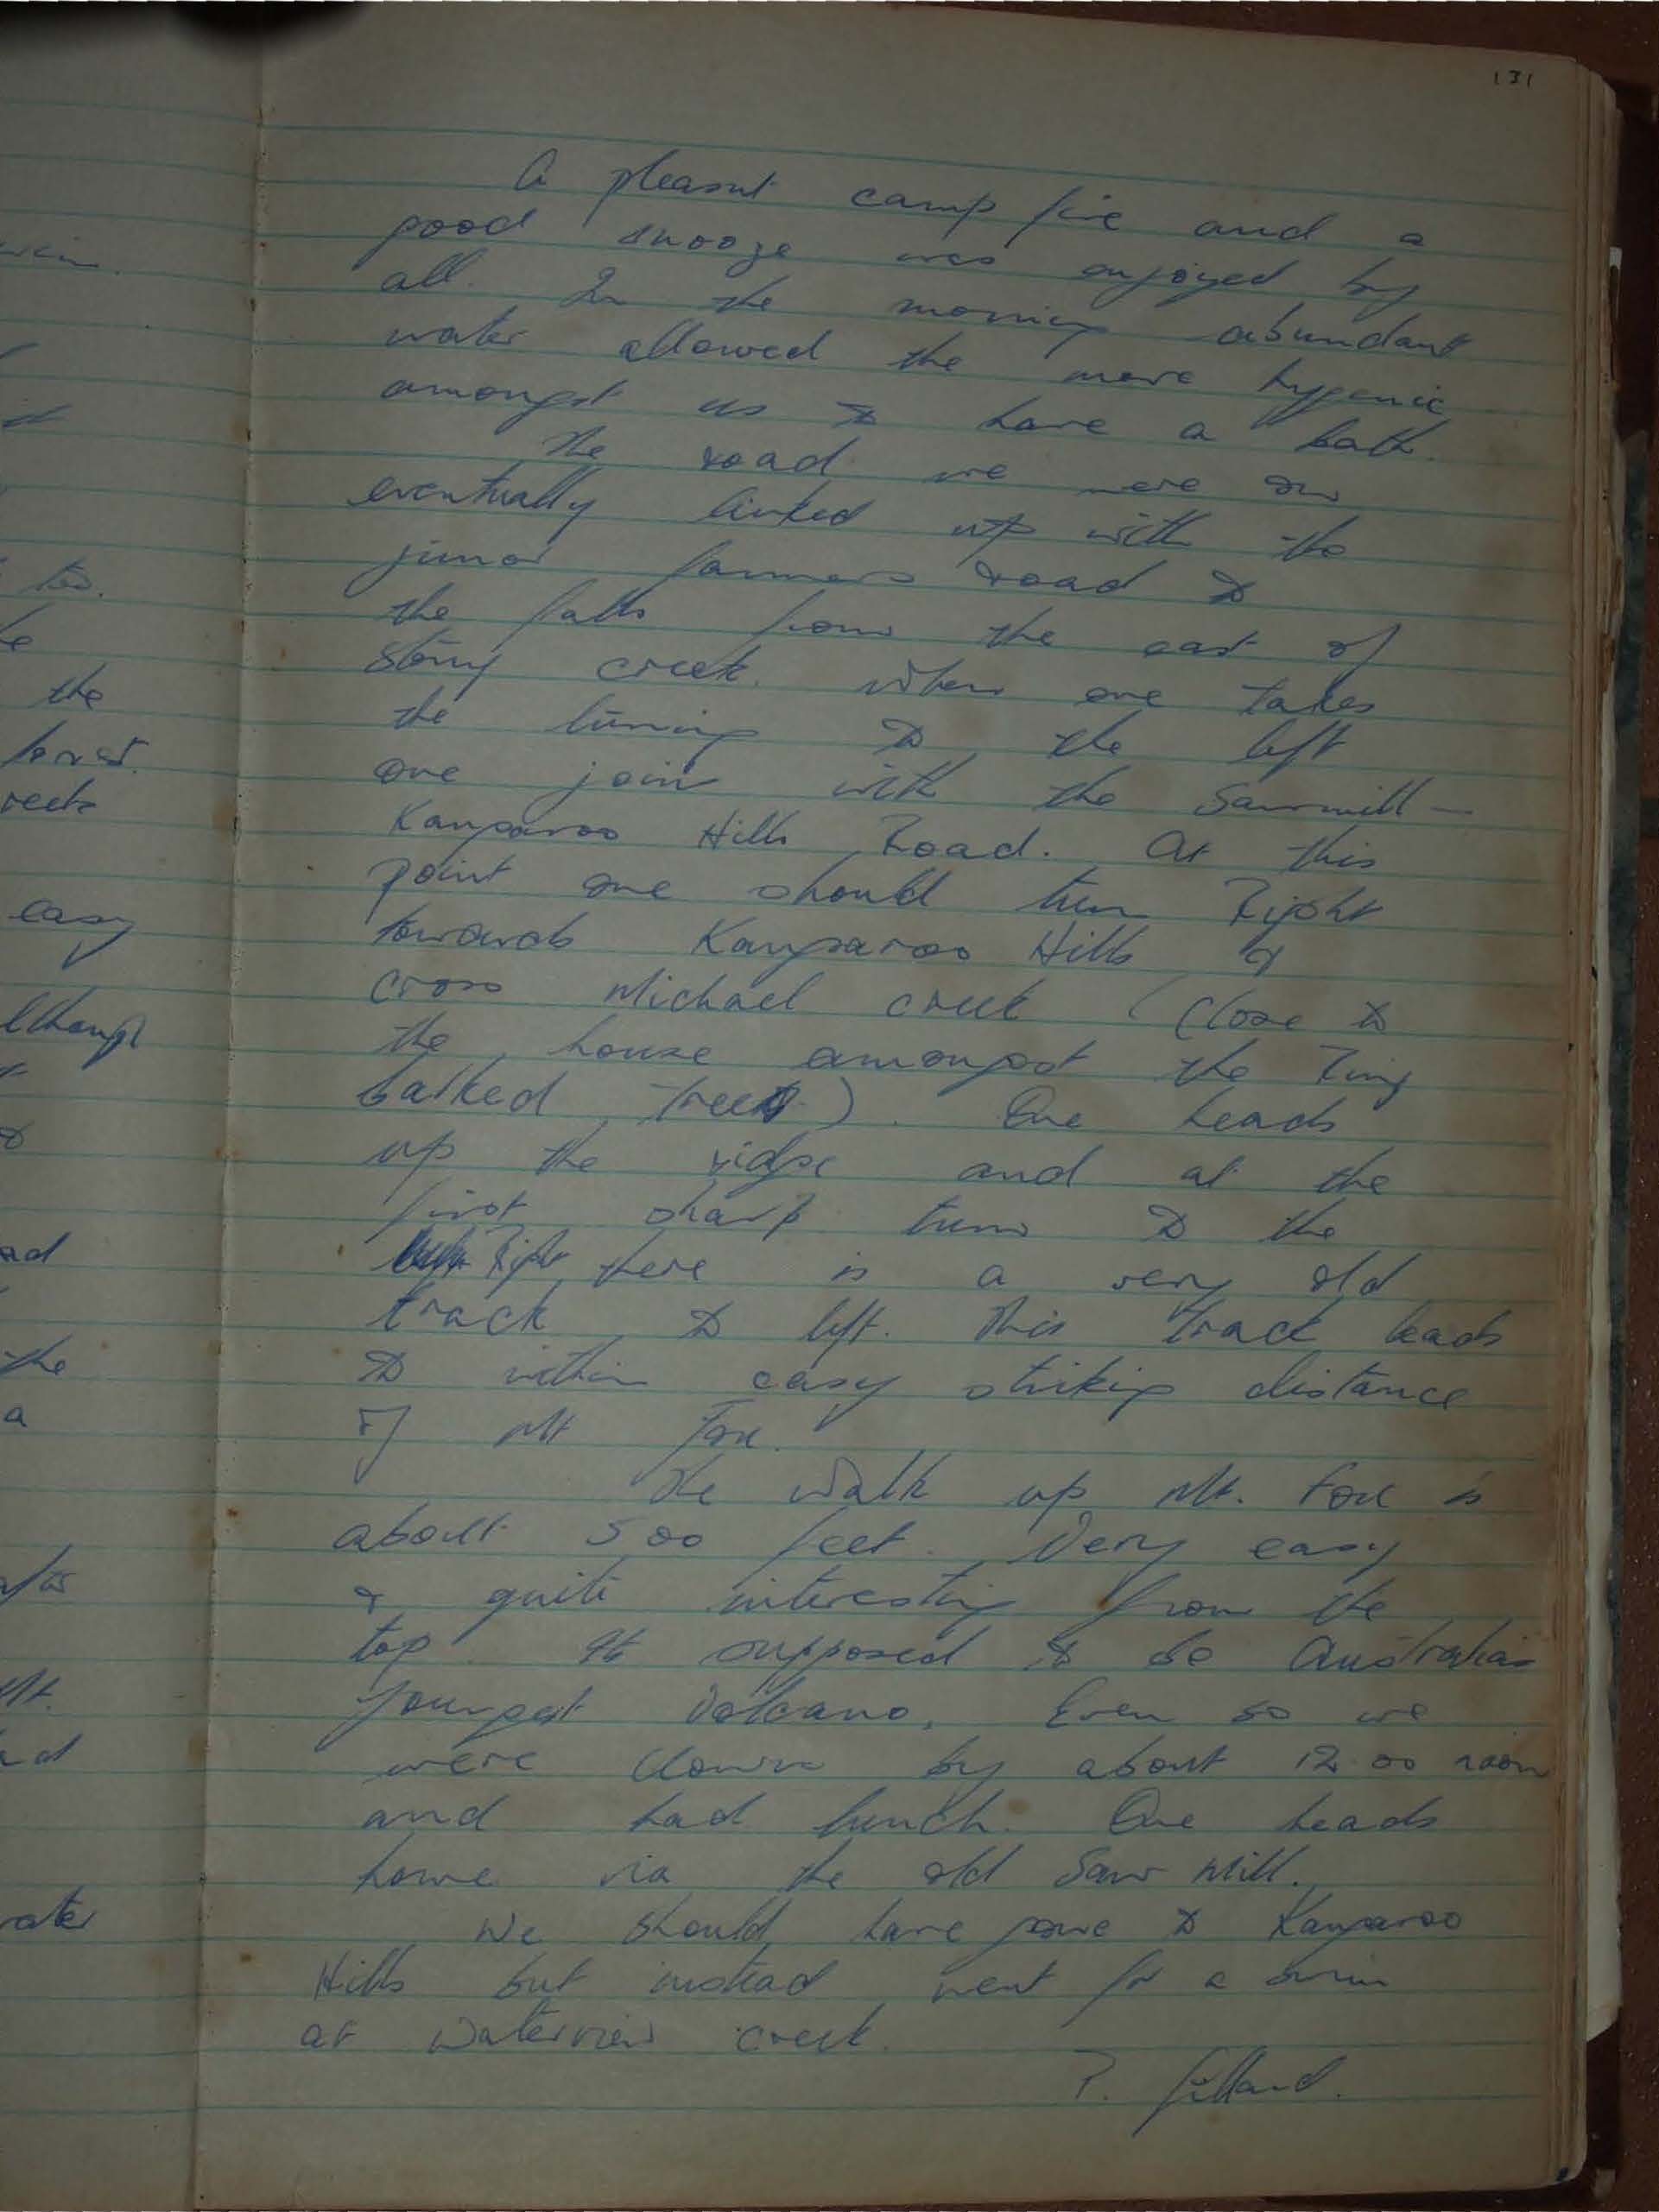 131
A pleasant camp fire and a
good snooze was enjoyed by
all. In the morning abundant
water allowed the more hygenic
amongst us to have a bath.
The road we were on
eventually linked up with the
junior farmers road to
the falls from the east of
stony creek. When one takes
the turning to the left
one join with the Sawmill –
Kangaroo Hills Road. At this
point one should turn Right
towards Kangaroo Hills &
cross Michael creek (close to
the house amongst the Ring
barked trees). One heads
up the ridge and at the
first sharp turn to the
Right there is a very old
track to left. This track leads
to within easy striking distance
of Mt Fox.
The walk up Mt. Fox is
about 500 feet. Very easy
& quite interesting from the
top. It supposed to be Australias
youngest Volcano. Even so we
were down by about 12.00 noon
and had lunch. One heads
home via the old Saw Mill.
We should have gone to Kangaroo
Hills but instead went for a swim
at Waterview creek.
P.
easy
the
the
a